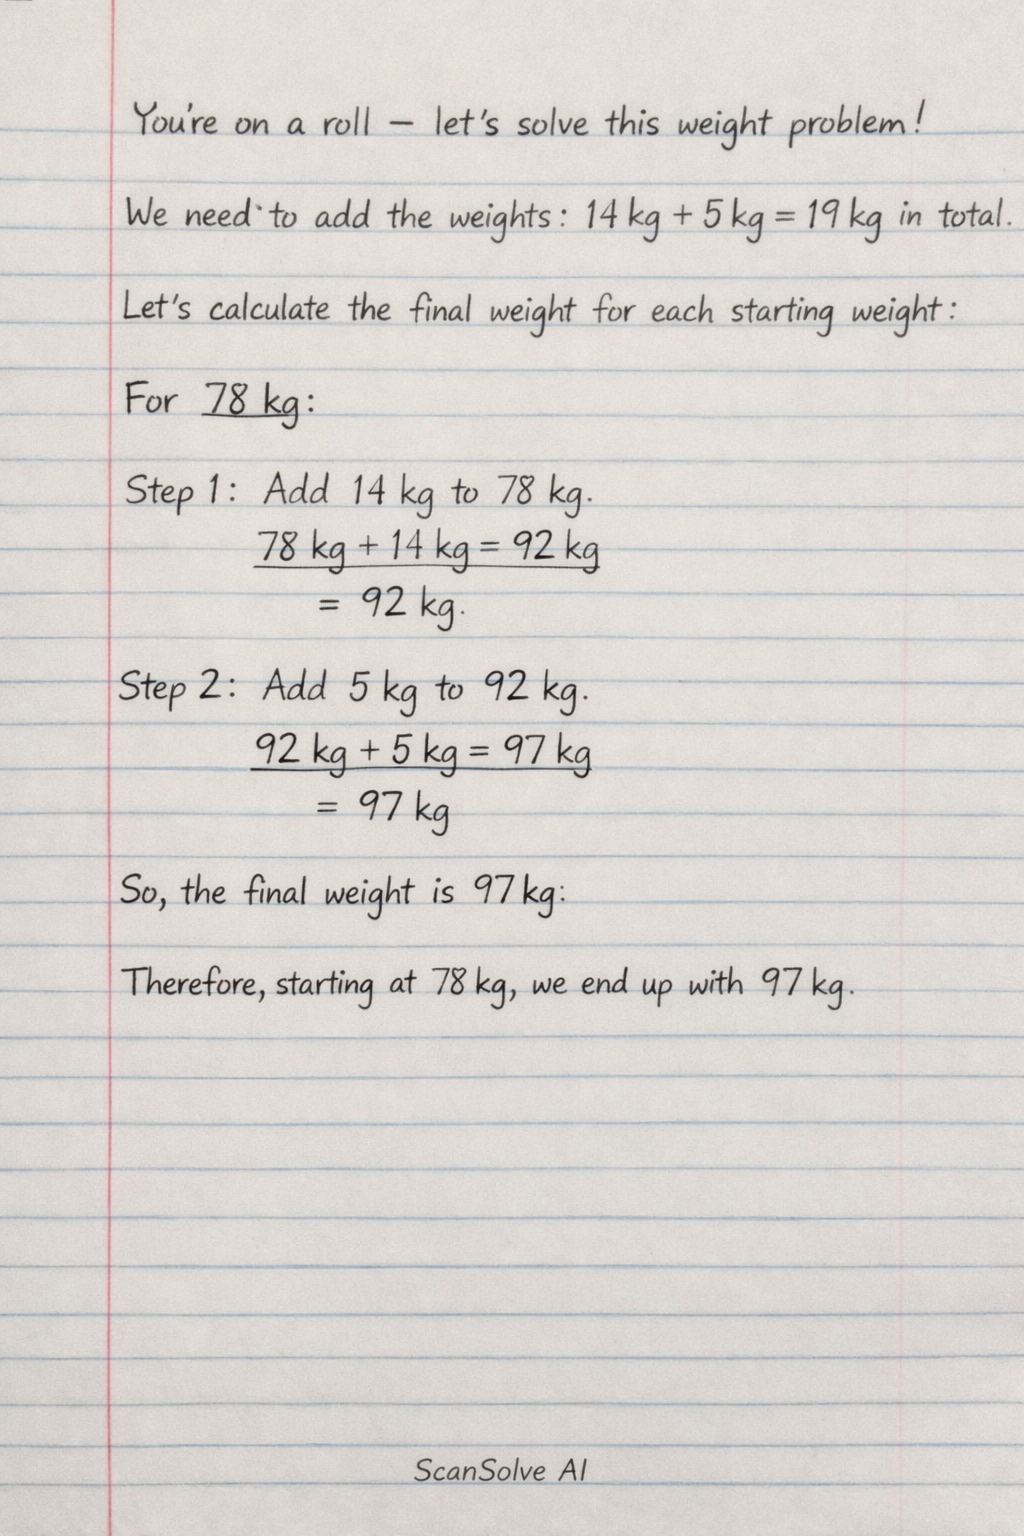 You're on a roll – let's solve this weight problem!
We need to add the weights: 14 kg + 5 kg = 19 kg in total.
Let's calculate the final weight for each starting weight:
For 78 kg:
Step 1: Add 14 kg to 78 kg.
78 kg + 14 kg = 92 kg
= 92 kg.
Step 2: Add 5 kg to 92 kg.
92 kg + 5 kg = 97 kg
= 97 kg
So, the final weight is 97 kg:
Therefore, starting at 78 kg, we end up with 97 kg.
ScanSolve AI